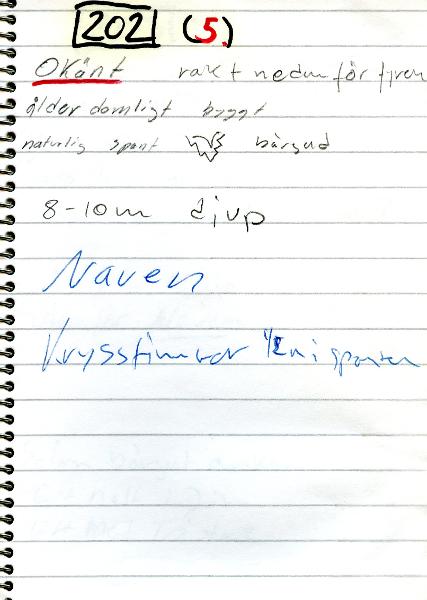 202 (5)
Okänt rakt nedanför fyren
ålder domligt byggt
naturlig spant bärgad
8-10m djup
Naven
Krysstimrar i sparren